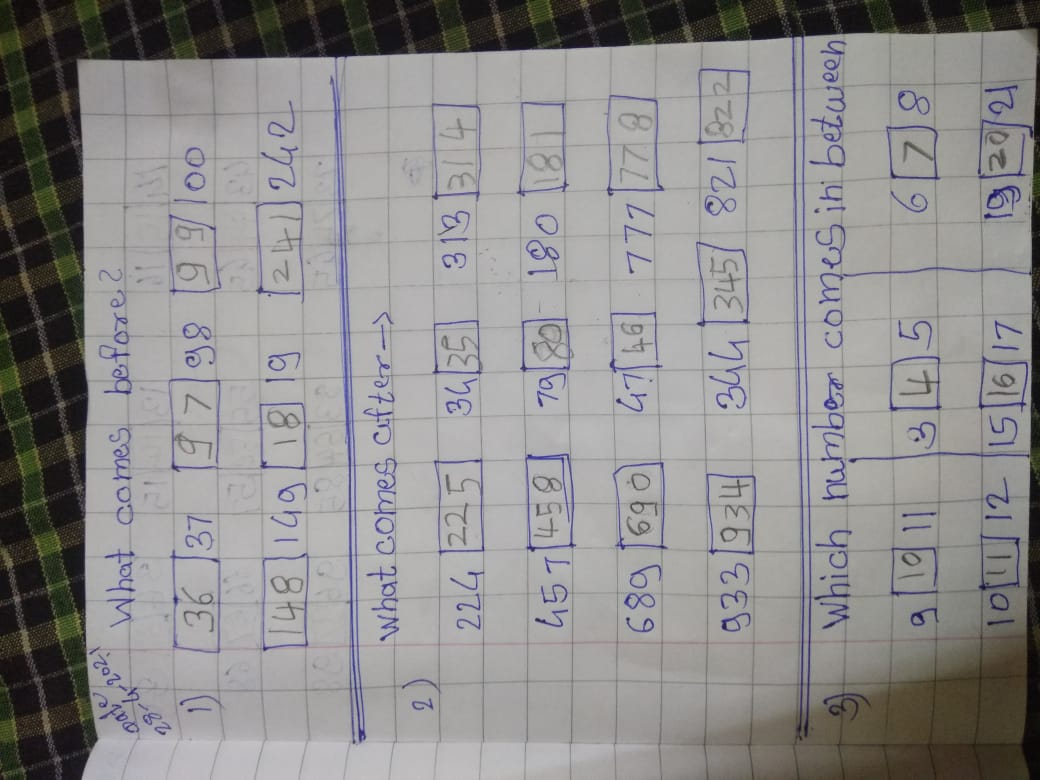 date
28/4/2021
What comes before?
1) 36 37 97 98 99 100
148 149 18 19 241 242
2) What comes after→
224 225 34 35 313 314
457 458 79 80 180 181
689 690 47 46 777 778
933 934 344 345 821 822
3) Which number comes in between
9 10 11 3 4 5 6 7 8
10 11 12 15 16 17 19 20 21